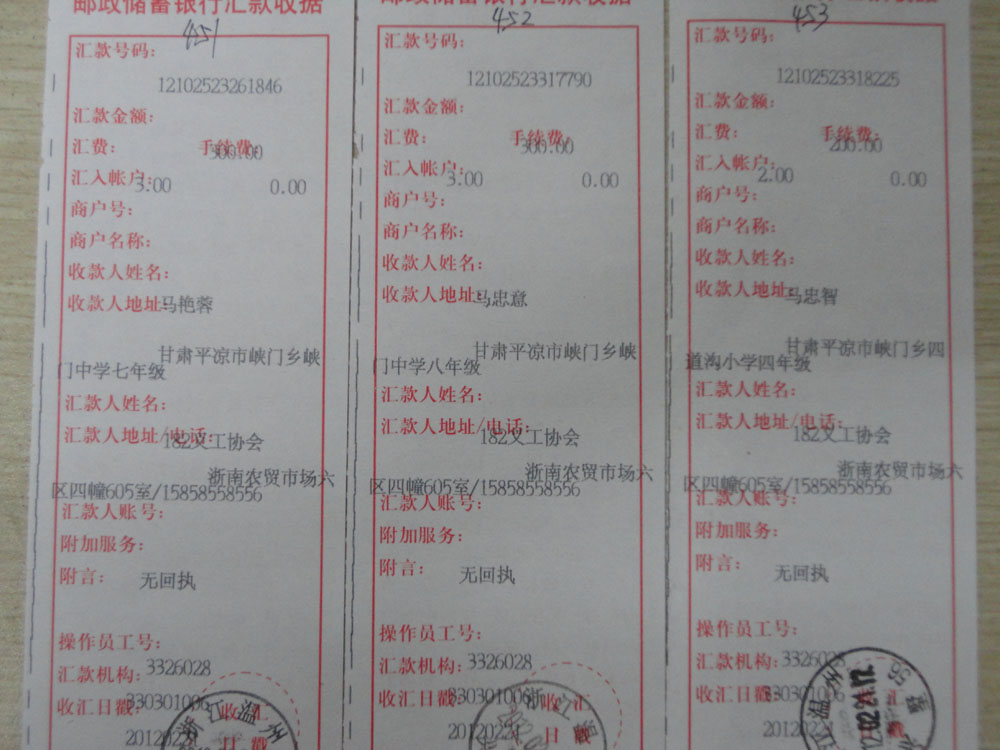 邮政储蓄银行汇款收据
451
汇款号码:
12102523261846
汇款金额:
汇费: 手续费:
300.00
汇入帐户:
3.00 0.00
商户号:
商户名称:
收款人姓名:
收款人地址:
马艳蓉
甘肃平凉市峡门乡峡
门中学七年级
汇款人姓名:
汇款人地址/电话:
182义工协会
浙南农贸市场六
区四幢605室/15858558556
汇款人账号:
附加服务:
附言: 无回执
操作员工号:
汇款机构: 3326028
收汇日戳: 330301006
20120221
浙江温州
收汇
日戳
邮政储蓄银行汇款收据
452
汇款号码:
12102523317790
汇款金额:
汇费: 手续费:
300.00
汇入帐户:
3.00 0.00
商户号:
商户名称:
收款人姓名:
收款人地址:
马忠意
甘肃平凉市峡门乡峡
门中学八年级
汇款人姓名:
汇款人地址/电话:
182义工协会
浙南农贸市场六
区四幢605室/15858558556
汇款人账号:
附加服务:
附言: 无回执
操作员工号:
汇款机构: 3326028
收汇日戳: 330301006
20120221
浙江
收汇
日
453
汇款号码:
12102523318225
汇款金额:
汇费: 手续费:
200.00
汇入帐户:
2.00 0.00
商户号:
商户名称:
收款人姓名:
收款人地址:
马忠智
甘肃平凉市峡门乡四
道沟小学四年级
汇款人姓名:
汇款人地址/电话:
182义工协会
浙南农贸市场六
区四幢605室/15858558556
汇款人账号:
附加服务:
附言: 无回执
操作员工号:
汇款机构: 3326028
收汇日戳: 330301006
20120221
温州